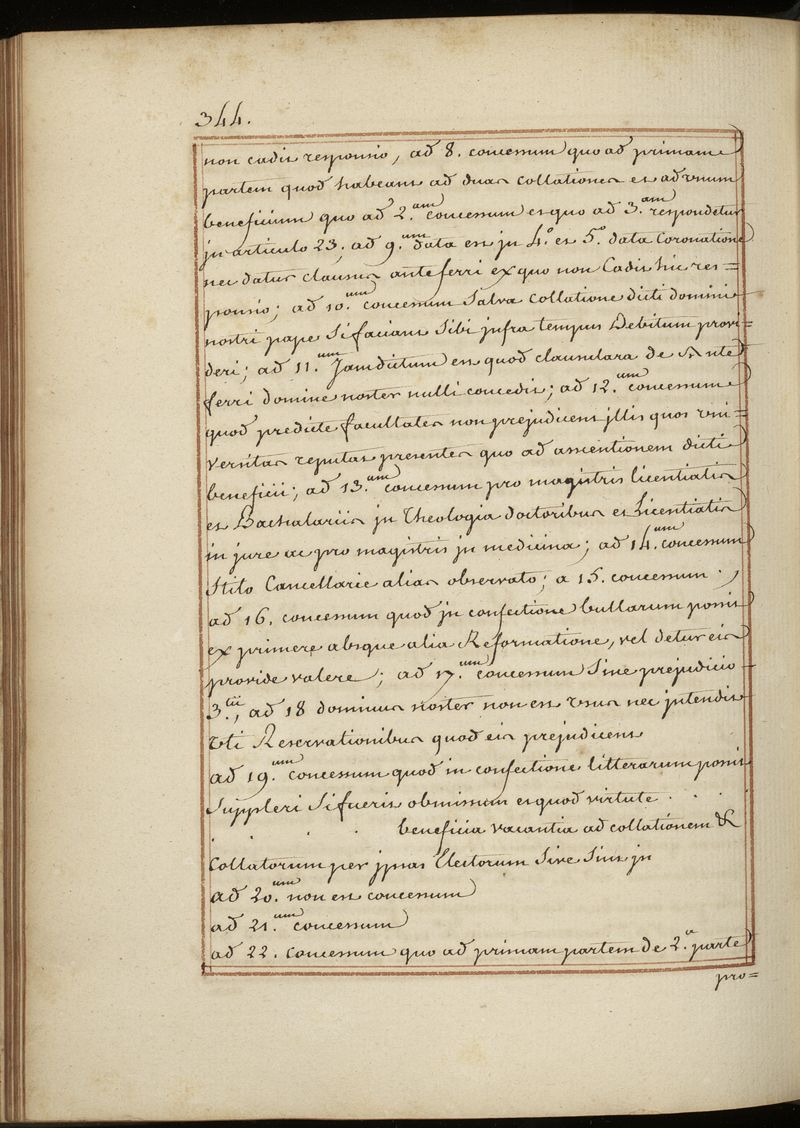 344.
non cadit responsio, ad 8. concessum quo ad primam
partem quod habeant ad duas collationes et ad vnum
beneficium quo ad 2.am concessum et quo ad 3.am respondetur
jn articulo 23; ad 9.um data est jn 4.o et 5.o data Coronatione
nec datur clausula anteferri ex quo non Cadit hic res=
ponsio; ad 10.um concessum Salva collatione dicti domini
nostri pape Si faciant Sibi jnfra tempus Debitum provi=
deri; ad 11.um Jamdictum est quod clausulara de Ante
ferri domine noster nulli concedit; ad 12.um concessum
quod predicte facultates non prejudicent jllis quos vni=
versitas reputat presentes quo ad assentionem dicti
beneficii; ad 13.um concessum pro magistris licentiatis
et Bachalariis jn Theologia doctoribus et Licentiatis
in jure ac pro magistris jn medicina; ad 14.um concessum
Stilo Cancellarie alias observato; a 15. concessum . ,
ad 16. concessum quod jn confectione bullarum possit
ex primere absque alia Reformatione, vel detur eis
provide valere; ad 17.um concessum Sine prejudicio
3.tii, ad 18 dominus noster non est vsus nec jntendit
Vti Reservationibus quod eis prejudicent
ad 19.um concessum quod in confectione litterarum possit
Suppleri Si fuerit obmissum et quod virtute . . .
. . . . beneficia vacantia ad collationem &
Collatorum per jpsas Electorum Sive Sint jn
ad 20.um non est concessum
ad 21.um concessum
ad 22. concessum quo ad primam partem de 2.a parte
pro=